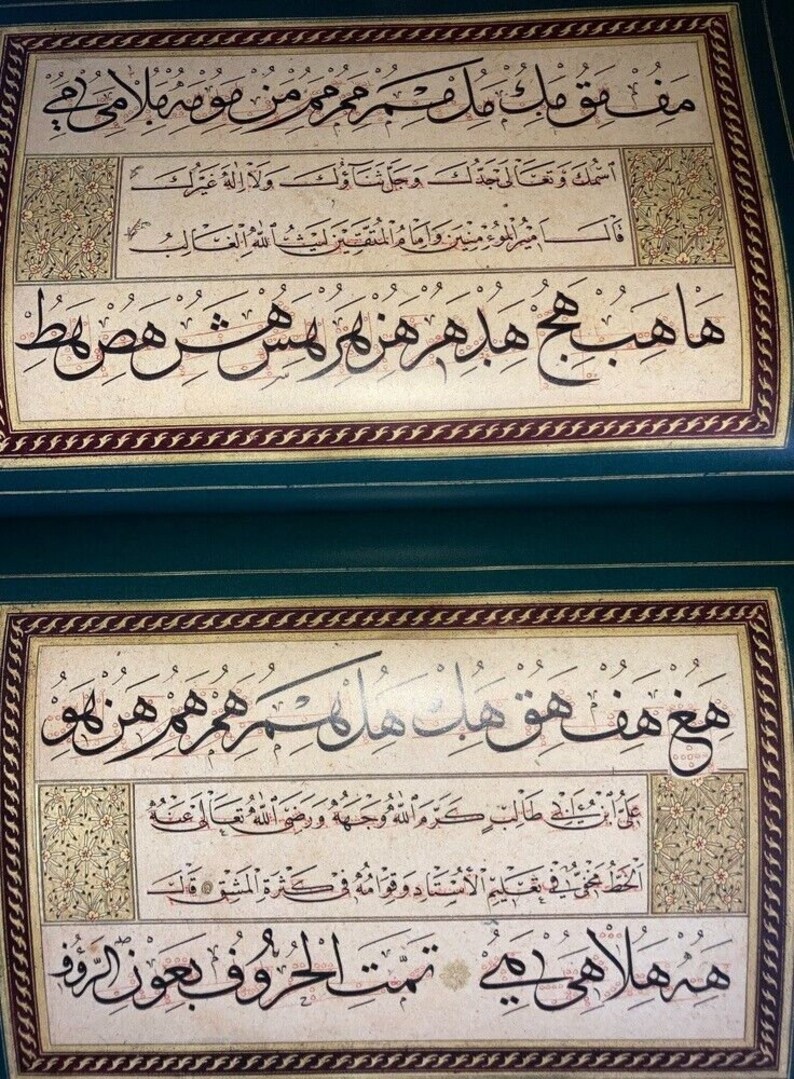 مف مق مك مل ممر ممر ممر من مو مه ملا مى مے
اسْمُكَ وَتَعَالَى جَدُّكَ وَجَلَّ ثَنَاؤُكَ وَلَا إِلٰهَ غَيْرُكَ
قَالَ امِيرُ الْمُؤْمِنِينَ وَإِمَامُ الْمُتَّقِينَ لَيْثُ اللّٰهِ الْغَالِبُ
ها هب هج هد هر هر هر هس هش هص هط
هغ هف هق هك هل همر همر همر هن هو
عَلِيُّ ابْنُ أَبِي طَالِبٍ كَرَّمَ اللّٰهُ وَجْهَهُ وَرَضِيَ اللّٰهُ تَعَالَى عَنْهُ
الْخَطُّ مَخْفِيٌّ فِي تَعْلِيمِ الْأُسْتَادِ وَقِوَامُهُ فِي كَثْرَةِ الْمَشْقِ قَالَ
هه هلا هى هے تَمَّتِ الْحُرُوفُ بِعَوْنِ الرَّؤُفِ